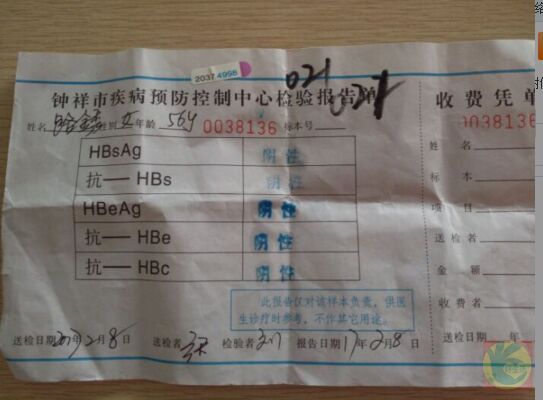 20374998
021
钟祥市疾病预防控制中心检验报告单
收费凭单
姓名 性别 女 年龄 56y 0038136 标本号
0038136
HBsAg 阴性
抗— HBs 阴性
HBeAg 阴性
抗— HBe 阴性
抗— HBc 阴性
姓名
标本
项目
送检者
金额
收费者
此报告仅对该样本负责,供医
生诊疗时参考,不作其它用途。
送检日期 年2月8日 送检者 检验者 报告日期11年2月8日
送检日期 年